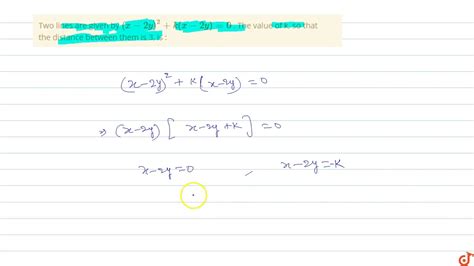 Two lines are given by (x − 2y)² + k(x − 2y) = 0. The value of k, so that
the distance between them is 3, is :
(x-2y)² + K(x-2y) = 0
⇒ (x-2y) [ x-2y+K ] = 0
x-2y=0 , x-2y=-K